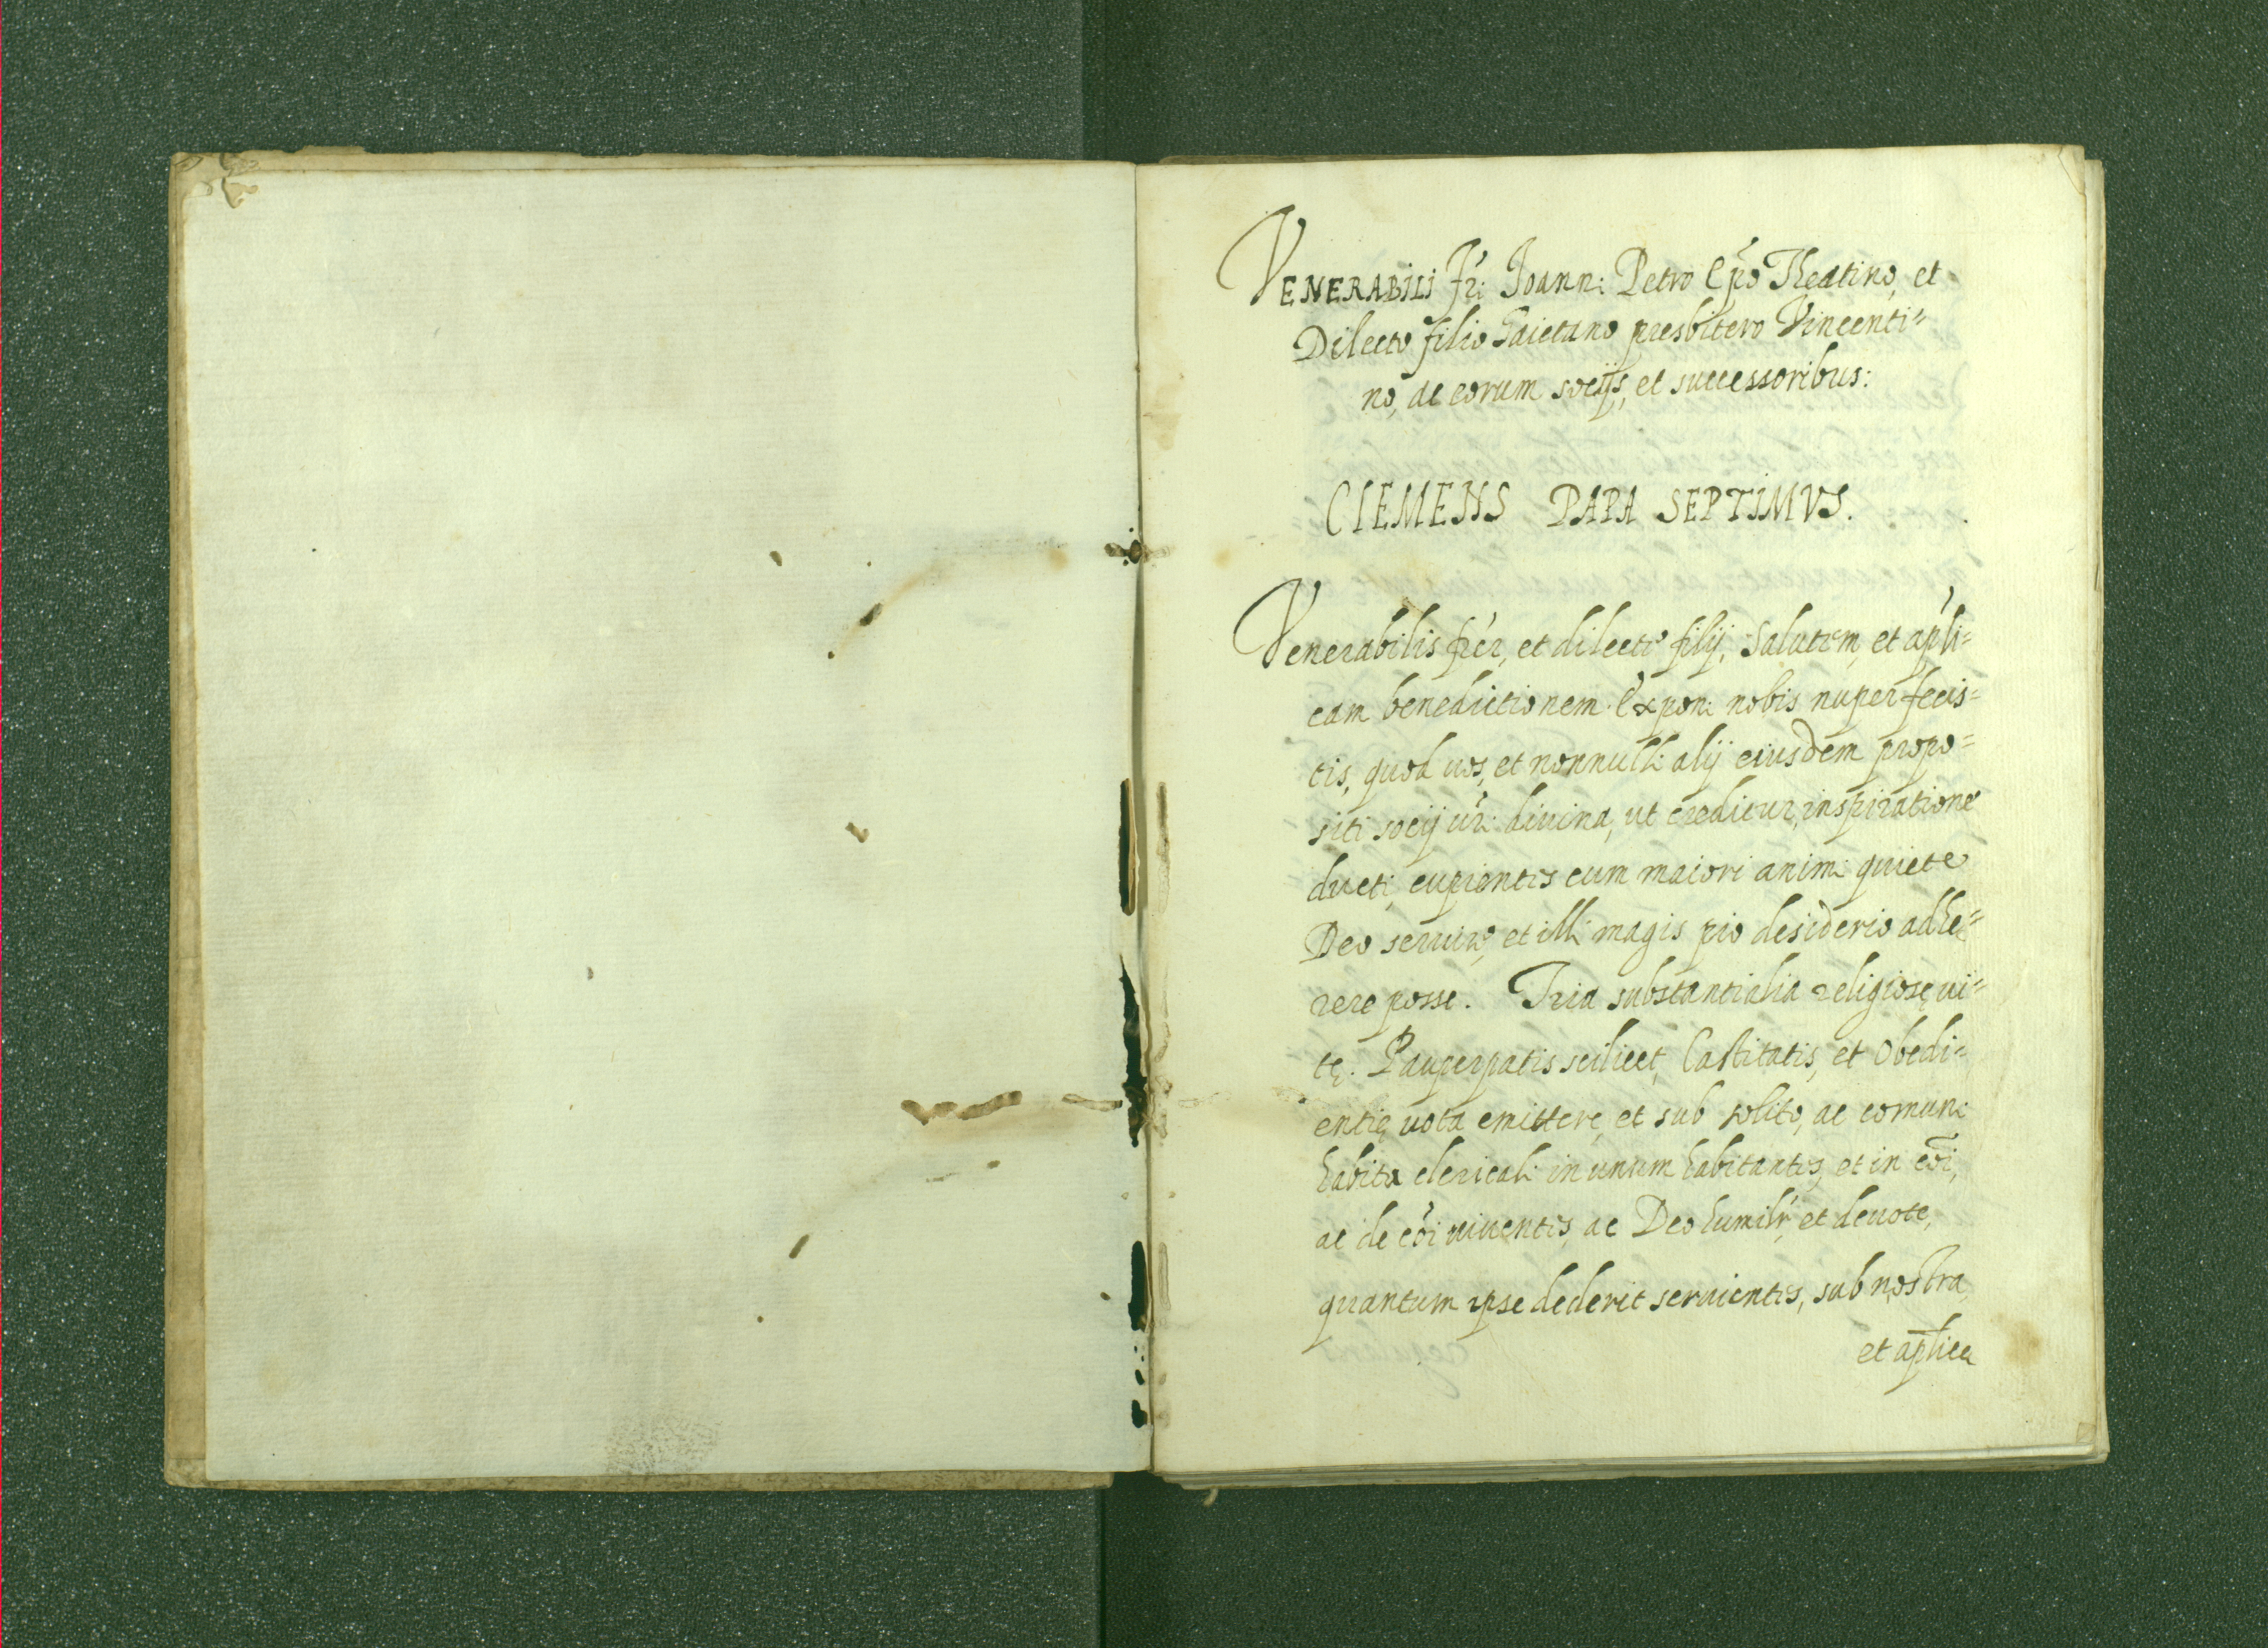 VENERABILI Fri Ioanni Petro Epo Theatino, et
Dilecto filio Gaietano presbitero Vincenti=
no, ac eorum socijs, et successoribus:
CLEMENS PAPA SEPTIMVS.
Venerabilis frer, et dilecti filij, Salutem, et apli=
cam benedictionem. Exponi nobis nuper fecis=
tis, quod uos, et nonnulli alij eiusdem propo=
siti socij uri diuina, ut creditur, inspiratione
ducti, cupientes cum maiori animi quiete
Deo seruire, et illi magis pio desiderio adhe=
rere posse. Tria substantialia religiosę ui=
tę. Pauperpatis scilicet, Castitatis, et Obedi=
entię uota emittere, et sub solito, ac comuni
habitu clericali in unum habitantes, et in coi,
ac de coi uiuentes, ac Deo humilr, et deuote,
quantum ipse dederit seruientes, sub nostra
et aplica